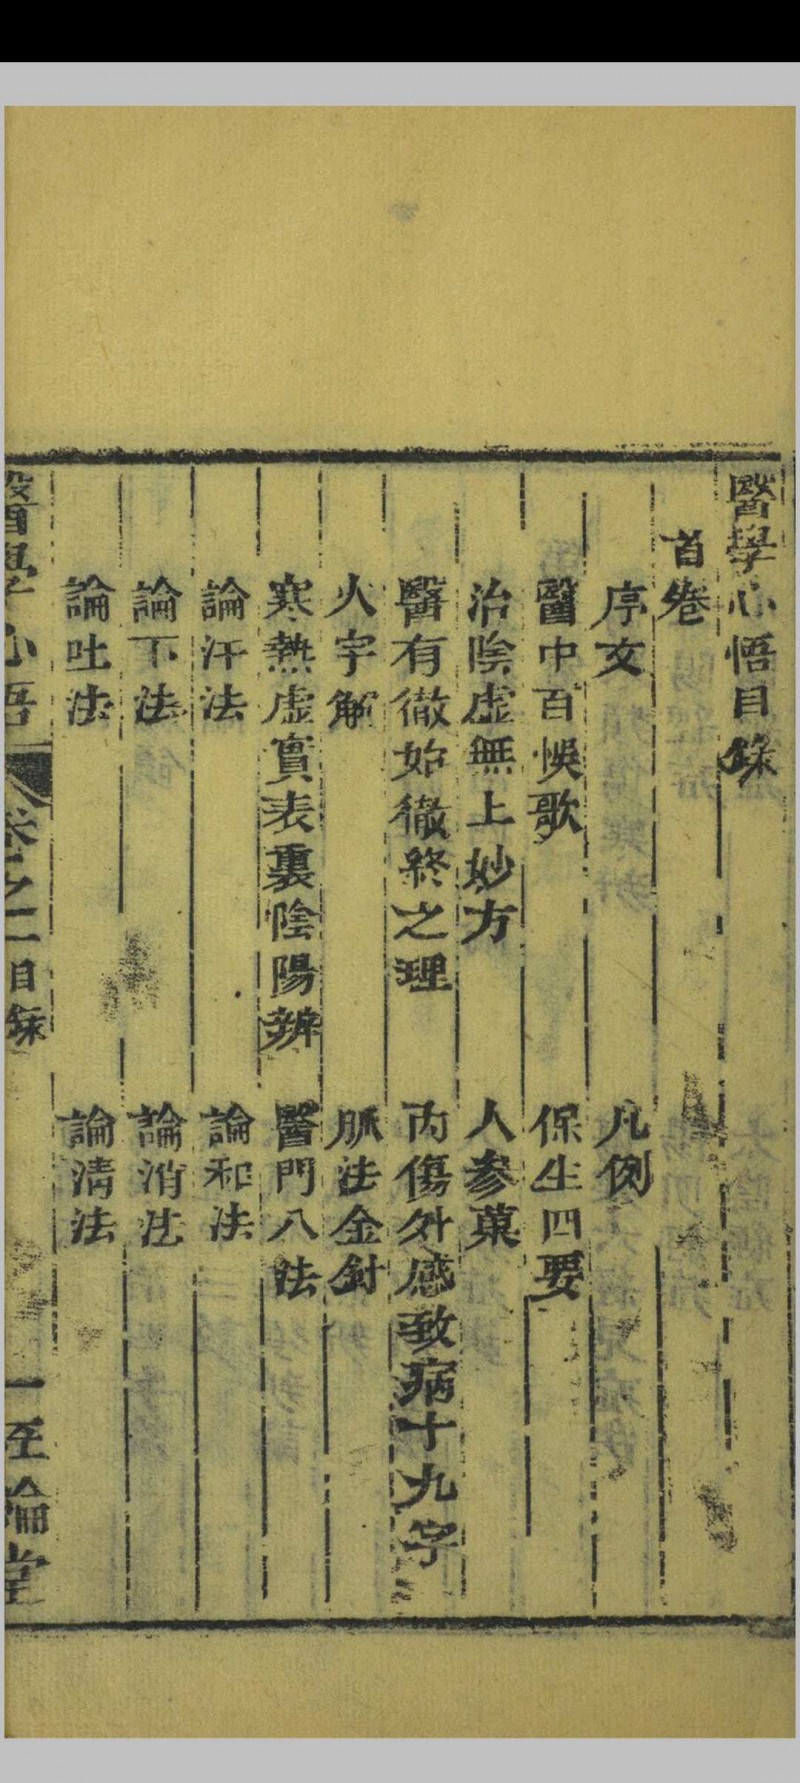 醫學心悟目錄
首卷
序文 凡例
醫中百悞歌 保生四要
治陰虛無上妙方 人參菓
醫有徹始徹終之理 內傷外感致病十九字
火字解 脈法金針
寒熱虛實表裏陰陽辨 醫門八法
論汗法 論和法
論下法 論消法
論吐法 論清法
醫學心悟 卷之一目錄 一